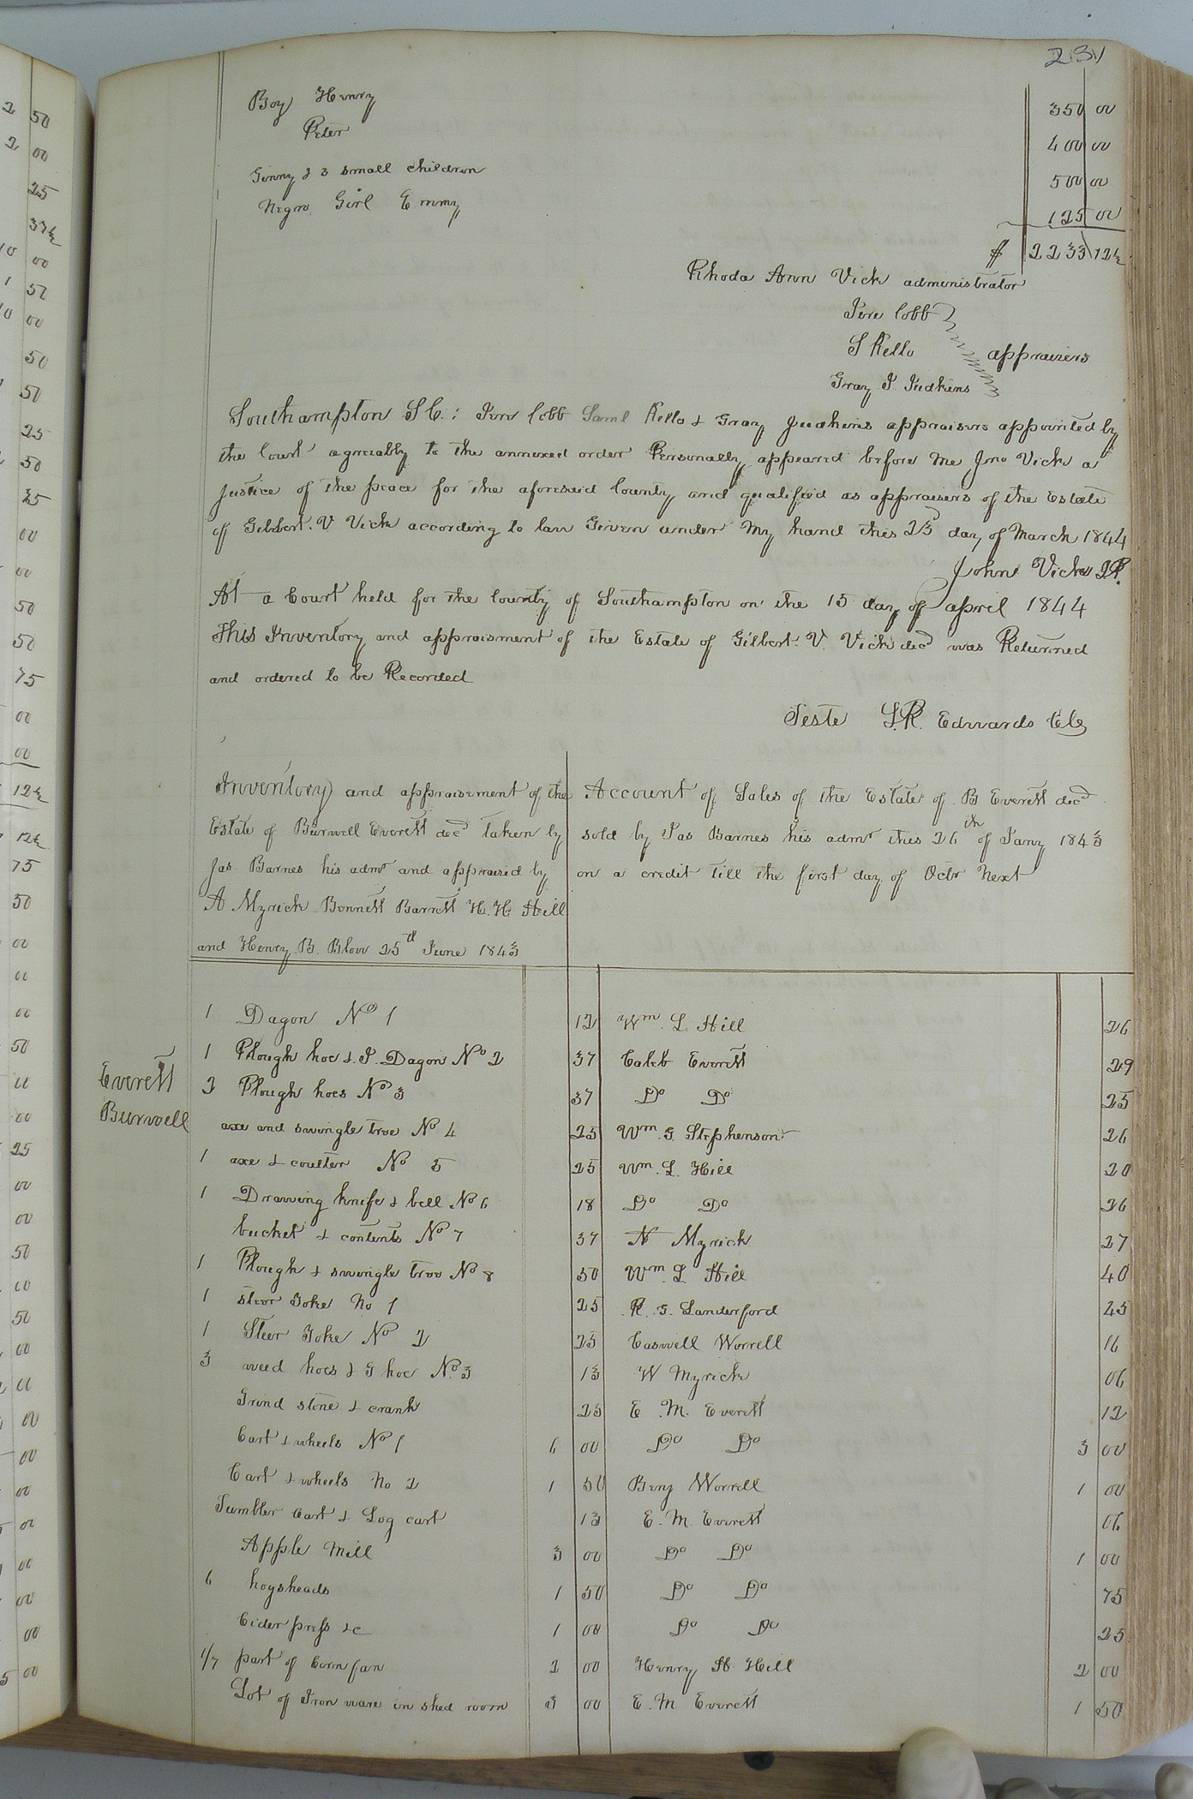 231
Boy Henry 350 00
Peter 400 00
Ginny & 3 small children 500 00
Negro Girl Emmy 125 00
$ 2233 12½
Rhoda Ann Vick administrator
Jere Cobb
S Kello appraisers
Gray J Judkins
Southampton SC.: Jere Cobb Saml Kello & Gray Judkins appraisers appointed by
the Court agreeably to the annexed order Personally appeared before me Jno Vick a
Justice of the peace for the aforesaid County and qualified as appraisers of the Estate
of Gilbert. V Vick according to law Given under my hand this 23d day of March 1844
John Vick J.P.
At a Court held for the County of Southampton on the 15 day of april 1844
This Inventory and appraisment of the Estate of Gilbert. V. Vick decd was Returned
and ordered to be Recorded
Teste L.R. Edwards Clk
Inventory and appraisement of the
Estate of Burwell Everett decd taken by
Jas Barnes his admr and appraised by
A Myrick Bennett Barrett H. H Hill
and Henry B. Blow 25th June 1843
Account of Sales of the Estate of B Everett decd
sold by Jas Barnes his admr this 26th of Jany 1843
on a credit till the first day of Octr Next
Everett
Burwell
1 Dagon No 1 12 Wm. L Hill 26
1 Plough hoe & J. Dagon No 2 37 Caleb Everett 29
2 Plough hoes No 3 37 Do Do 25
axe and swingle tree No 4 25 Wm. G Stephenson 26
1 axe & coulter No 5 25 Wm. L. Hill 20
1 Drawing knife & bell No 6 18 Do Do 26
bucket & contents No 7 37 N Myrick 27
1 Plough & swingle tree No 8 50 Wm. L Hill 40
1 steer Yoke No 1 25 R. G. Landerford 45
1 Steer Yoke No 2 25 Caswell Worrell 16
3 weed hoes & G hoe No. 3 13 W Myrick 06
Grind stone & crank 25 E. M. Everett 12
Cart & wheels No 1 6 00 Do Do 3 00
Cart & wheels No 2 1 50 Benj Worrell 1 00
Tumbler Cart & Log cart 13 E. M. Everett 06
Apple Mill 3 00 Do Do 1 00
6 hogsheads 1 50 Do Do 75
Cider press &c 1 00 Do Do 25
1/7 part of Corn fan 2 00 Henry H. Hill 2 00
Lot of Iron ware in shed room 3 00 E. M Everett 1 50